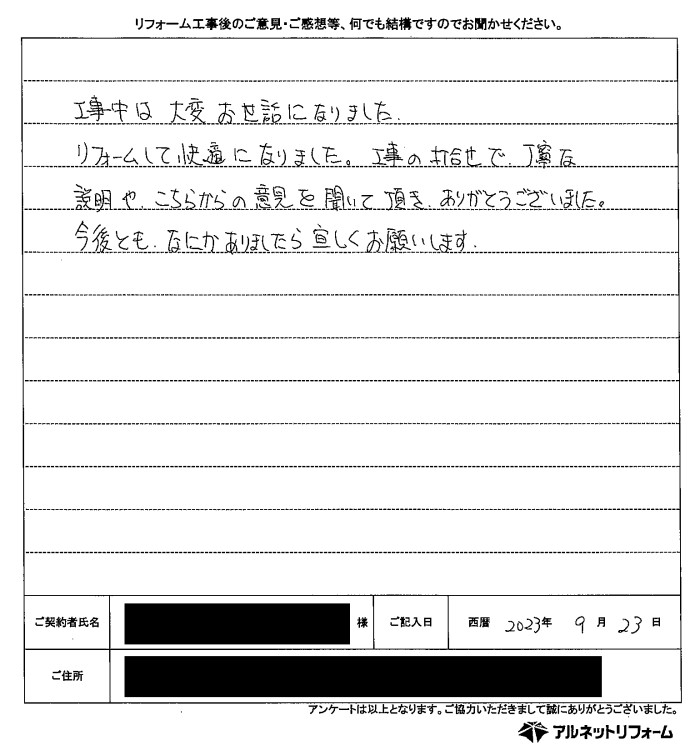 リフォーム工事後のご意見・ご感想等、何でも結構ですのでお聞かせください。
工事中は 大変 お世話になりました.
リフォームして快適になりました。工事の打合せで、丁寧な
説明や、こちらからの意見を聞いて頂き、ありがとうございました。
今後とも、なにかありましたら宜しくお願いします.
ご契約者氏名 様 ご記入日 西暦 2023年 9月 23日
ご住所
アンケートは以上となります。ご協力いただきまして誠にありがとうございました。
アルネットリフォーム